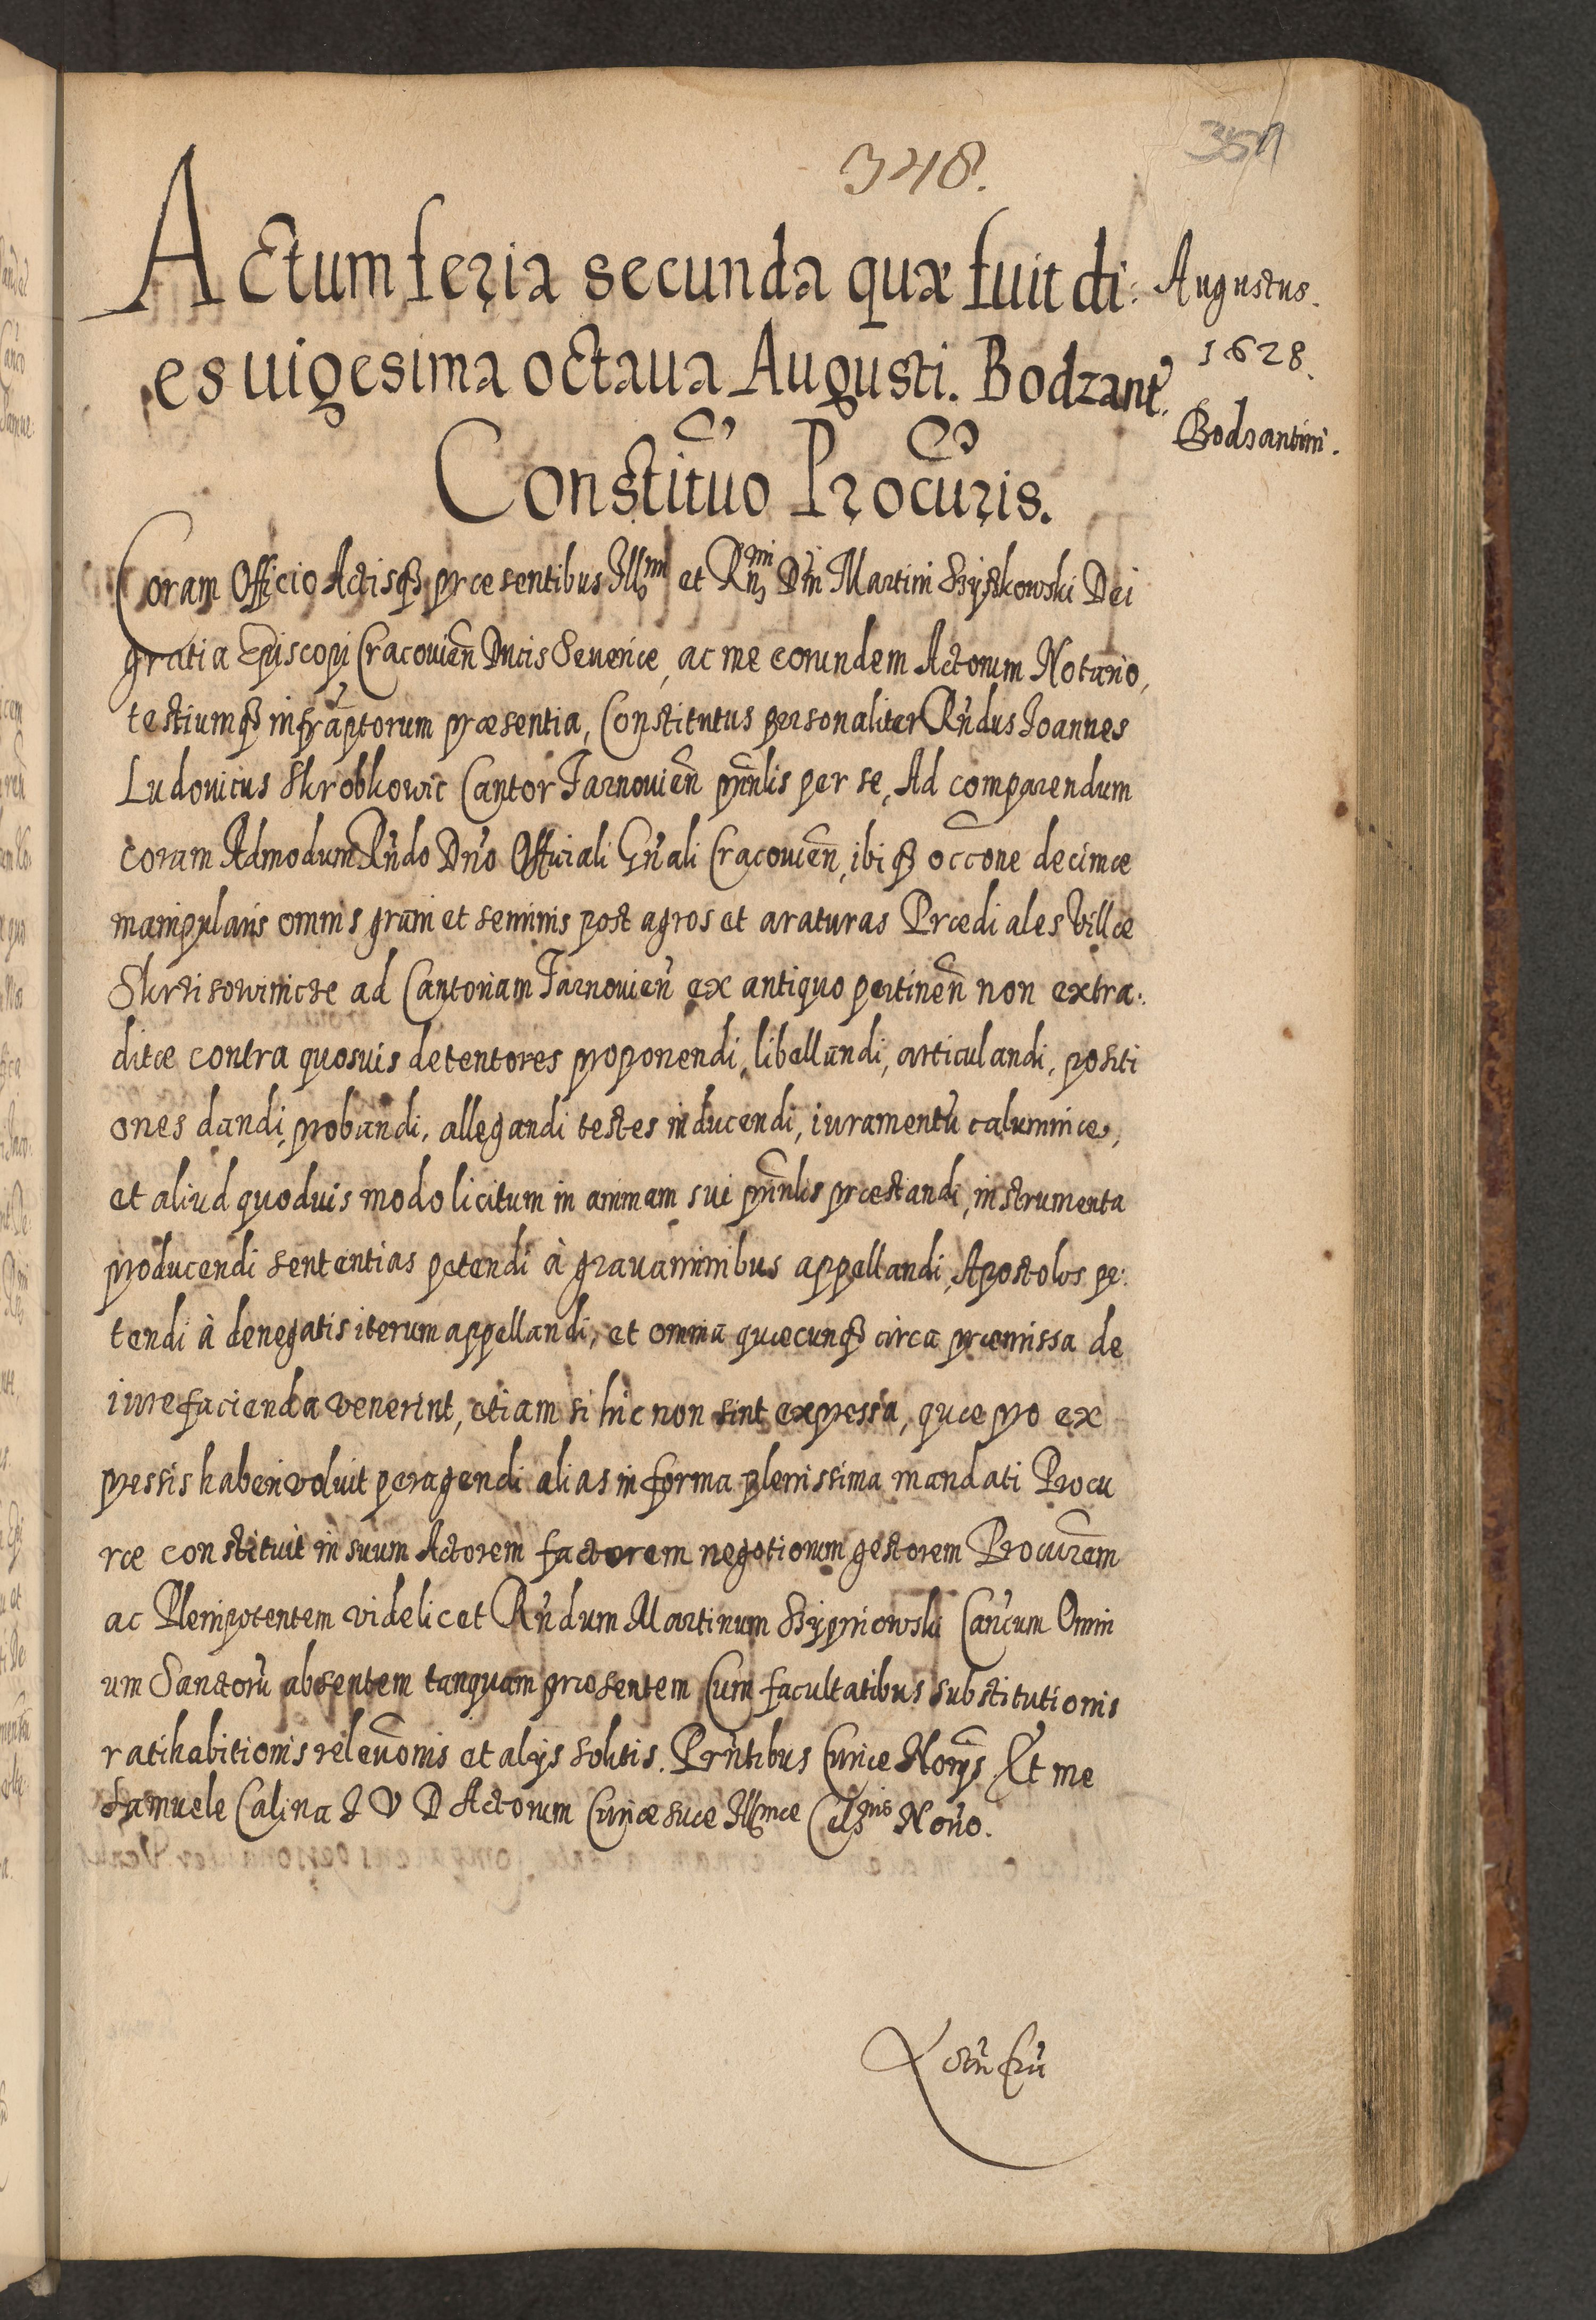 348.
Actum feria secunda quæ fuit di:
es uigesima octaua Augusti. Bodzant.
Augustus.
1628.
Bodzantini.
Constituo Procuris.
Coram Officio Actisq præsentibus Illmi et Rmi Dni Martini Szyszkowski Dei
gratia Episcopi Cracouien Ducis Seueriæ, ac me eorundem Actorum Notario,
testiumq infraptorum præsentia, Constitutus personaliter Rndus Joannes
Ludouicus Skrobkowic Cantor Tarnouien prinlis per se, Ad comparendum
coram Admodum Rndo Dno Officiali Gnali Cracouien, ibiq occone decimæ
manipularis omnis grani et seminis post agros et araturas Prædiales Villæ
ad Cantoriam Tarnouien ex antiquo pertinen non extra:
ditæ contra quosuis detentores proponendi, libellandi, articulandi, positi
ones dandi, probandi, allegandi testes inducendi, iuramentu calumniæ,
et aliud quoduis modo licitum in animam sui prinlis præstandi, instrumenta
producendi sententias petendi à grauaminibus appellandi, Apostolos pe:
tendi à denegatis iterum appellandi, et omnia quæcunq circa præmissa de
iure facienda venerint, etiam si hic non sint expressa, quæ pro ex
pressis haberi voluit peragendi alias in forma plenissima mandati Procu
ræ constituit in suum Actorem factorem negotiorum gestorem Procurem
ac Plenipotentem videlicet Rndum Martinum Szypniowski Cancum Omni
um Sanctoru absentem tanquam præsentem Cum facultatibus substitutionis
ratihabitionis releuonis et alijs solitis. Prntibus Curiæ Norijs. Et me
Samuele Calina I V D Actorum Curiæ suæ Illmæ Celsnis Norio.